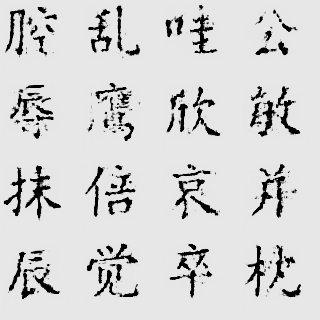 腔乱哇公
辱鹰欣敏
抹倍哀并
辰觉卒枕